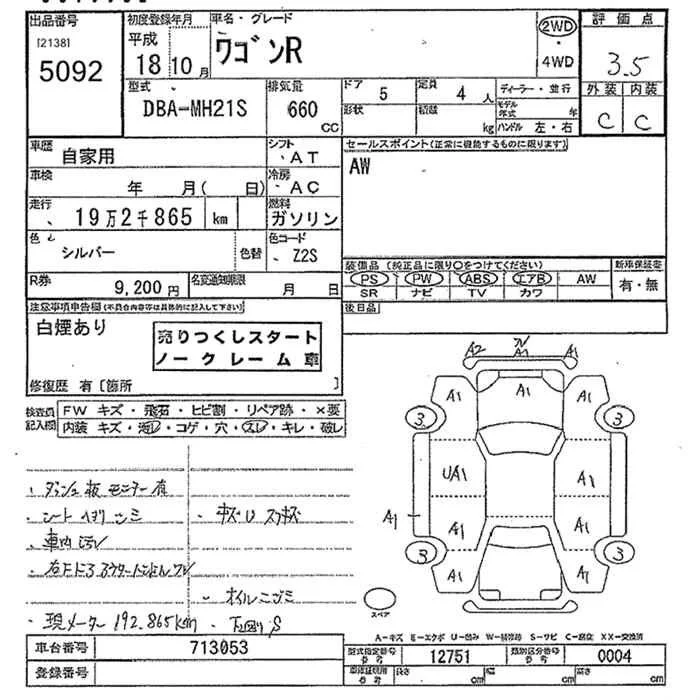 出品番号
[2138]
5092
初度登録年月
平成
18 10月
車名・グレード
ワゴンR
2WD
・
4WD
評価点
3.5
外装 内装
C C
型式
DBA-MH21S
排気量
660
CC
ドア 5
形状
定員 4 人
積載 kg
ディーラー・並行
モデル年式 年
ハンドル 左・右
車歴
自家用
シフト
AT
車検
年 月( 日)
冷房
AC
走行
19万2千865 km
燃料
ガソリン
色
シルバー
色替
色コード
Z2S
R券
9,200 円
名変通知期限
月 日
セールスポイント(正常に機能するものに限ります)
AW
装備品 (純正品に限り○をつけてください)
PS PW ABS エアB AW
SR ナビ TV カワ
新車保証書
有・無
後日品
注意事項申告欄(不具合内容等は具体的に記入して下さい)
白煙あり
売りつくしスタート
ノークレーム車
修復歴 有〔箇所 〕
検査員記入欄
FW キズ・飛石・ヒビ割・リペア跡・×要
内装 キズ・汚レ・コゲ・穴・スレ・キレ・破レ
・ダッシュ板モニター有
・シート
・車内汚レ
・キズU スリキズ
・オイルニジミ
・現メーター192,865km
・下回りS
A2 A1 A1
A1 A1 A1
3 3
UA1 A1
A1 A1 A1
3 3
A1 A1
スペア
A-キズ E-エクボ U-凹み W-補修跡 S-サビ C-腐食 XX-交換済
車台番号
713053
登録番号
型式指定番号
12751
類別区分番号
0004
長さ cm 幅 cm 高さ cm